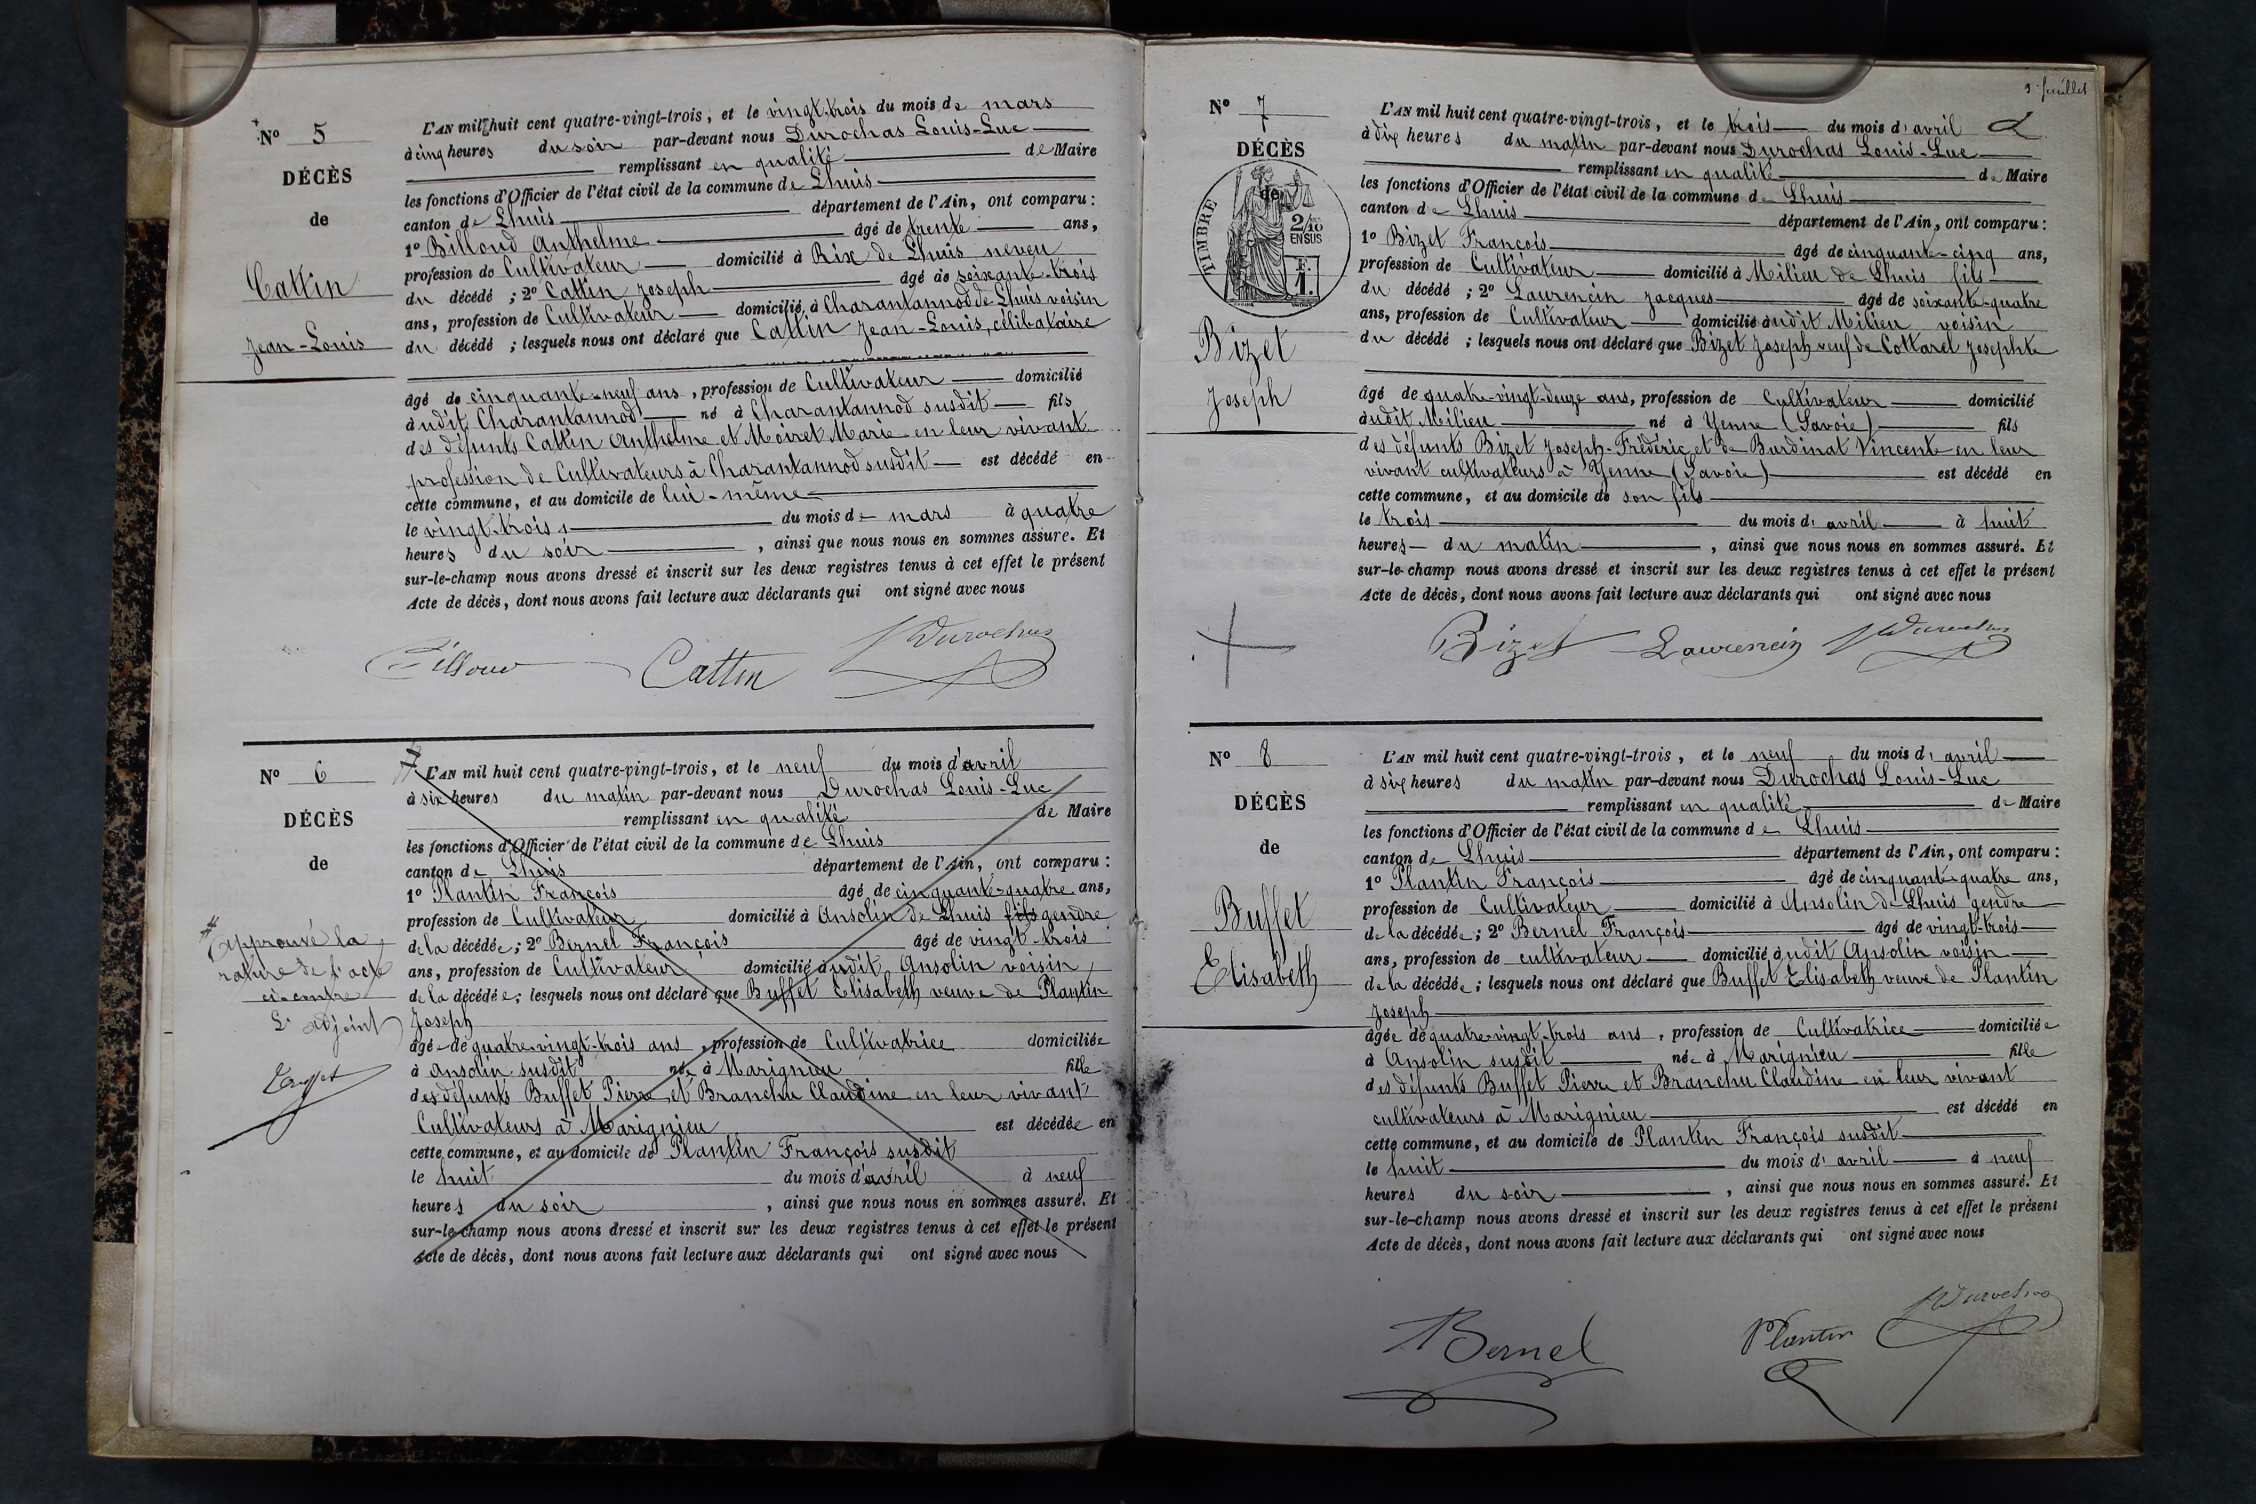 N° 5
DÉCÈS
de
Cattin
Jean-Louis
L'AN mil huit cent quatre-vingt-trois, et le vingt-trois du mois de mars
à cinq heures du soir par-devant nous Durochas Louis-Luc
remplissant en qualité de Maire
les fonctions d'Officier de l'état civil de la commune de Lhuis
canton de Lhuis département de l'Ain, ont comparu :
1° Billoud Anthelme âgé de trente ans,
profession de Cultivateur domicilié à Rix de Lhuis neveu
du décédé ; 2° Cattin Joseph âgé de soixante-trois
ans, profession de Cultivateur domicilié à Charantannod de Lhuis voisin
du décédé ; lesquels nous ont déclaré que Cattin Jean-Louis, célibataire
âgé de cinquante-neuf ans, profession de Cultivateur domicilié
audit Charantannod né à Charantannod susdit fils
des défunts Cattin Anthelme et Moiret Marie en leur vivant
profession de Cultivateurs à Charantannod susdit est décédé en
cette commune, et au domicile de lui-même
le vingt-trois du mois de mars à quatre
heures du soir, ainsi que nous nous en sommes assuré. Et
sur-le-champ nous avons dressé et inscrit sur les deux registres tenus à cet effet le présent
Acte de décès, dont nous avons fait lecture aux déclarants qui ont signé avec nous
Billoud Cattin Durochas
N° 6
DÉCÈS
de
approuvé la
rature de l'acte
ci-contre
L'adjoint
L'AN mil huit cent quatre-vingt-trois, et le neuf du mois d'avril
à six heures du matin par-devant nous Durochas Louis-Luc
remplissant en qualité de Maire
les fonctions d'Officier de l'état civil de la commune de Lhuis
canton de Lhuis département de l'Ain, ont comparu :
1° Plantin François âgé de cinquante-quatre ans,
profession de Cultivateur domicilié à Ansolin de Lhuis fils gendre
de la décédée ; 2° Bernel François âgé de vingt-trois
ans, profession de Cultivateur domicilié audit Ansolin voisin
de la décédée ; lesquels nous ont déclaré que Buffet Elisabeth veuve de Plantin
Joseph
âgée de quatre-vingt-trois ans, profession de Cultivatrice domiciliée
à Ansolin susdit née à Marignieu fille
des défunts Buffet Pierre et Branchu Claudine en leur vivant
Cultivateurs à Marignieu est décédée en
cette commune, et au domicile de Plantin François susdit
le huit du mois d'avril à neuf
heures du soir, ainsi que nous nous en sommes assuré. Et
sur-le-champ nous avons dressé et inscrit sur les deux registres tenus à cet effet le présent
Acte de décès, dont nous avons fait lecture aux déclarants qui ont signé avec nous
3e feuillet
N° 7
DÉCÈS
de
TIMBRE
2/10
EN SUS
F.
1.
Bizet
Joseph
L'AN mil huit cent quatre-vingt-trois, et le trois du mois d'avril
à dix heures du matin par-devant nous Durochas Louis-Luc
remplissant en qualité de Maire
les fonctions d'Officier de l'état civil de la commune de Lhuis
canton de Lhuis département de l'Ain, ont comparu :
1° Bizet François âgé de cinquante-cinq ans,
profession de Cultivateur domicilié à Milieu de Lhuis fils
du décédé ; 2° Laurencin Jacques âgé de soixante-quatre
ans, profession de Cultivateur domicilié audit Milieu voisin
du décédé ; lesquels nous ont déclaré que Bizet Joseph veuf de Cottarel Josephte
âgé de quatre-vingt-douze ans, profession de Cultivateur domicilié
audit Milieu né à Yenne (Savoie) fils
des défunts Bizet Joseph-Frédéric et de Burdinat Vincente en leur
vivant cultivateurs à Yenne (Savoie) est décédé en
cette commune, et au domicile de son fils
le trois du mois d'avril à huit
heures du matin, ainsi que nous nous en sommes assuré. Et
sur-le-champ nous avons dressé et inscrit sur les deux registres tenus à cet effet le présent
Acte de décès, dont nous avons fait lecture aux déclarants qui ont signé avec nous
Bizet Laurencin Durochas
N° 8
DÉCÈS
de
Buffet
Elisabeth
L'AN mil huit cent quatre-vingt-trois, et le neuf du mois d'avril
à six heures du matin par-devant nous Durochas Louis-Luc
remplissant en qualité de Maire
les fonctions d'Officier de l'état civil de la commune de Lhuis
canton de Lhuis département de l'Ain, ont comparu :
1° Plantin François âgé de cinquante-quatre ans,
profession de Cultivateur domicilié à Ansolin de Lhuis gendre
de la décédée ; 2° Bernel François âgé de vingt-trois
ans, profession de cultivateur domicilié audit Ansolin voisin
de la décédée ; lesquels nous ont déclaré que Buffet Elisabeth veuve de Plantin
Joseph
âgée de quatre-vingt-trois ans, profession de Cultivatrice domiciliée
à Ansolin susdit née à Marignieu fille
des défunts Buffet Pierre et Branchu Claudine en leur vivant
cultivateurs à Marignieu est décédé en
cette commune, et au domicile de Plantin François susdit
le huit du mois d'avril à neuf
heures du soir, ainsi que nous nous en sommes assuré. Et
sur-le-champ nous avons dressé et inscrit sur les deux registres tenus à cet effet le présent
Acte de décès, dont nous avons fait lecture aux déclarants qui ont signé avec nous
Bernel Plantin Durochas